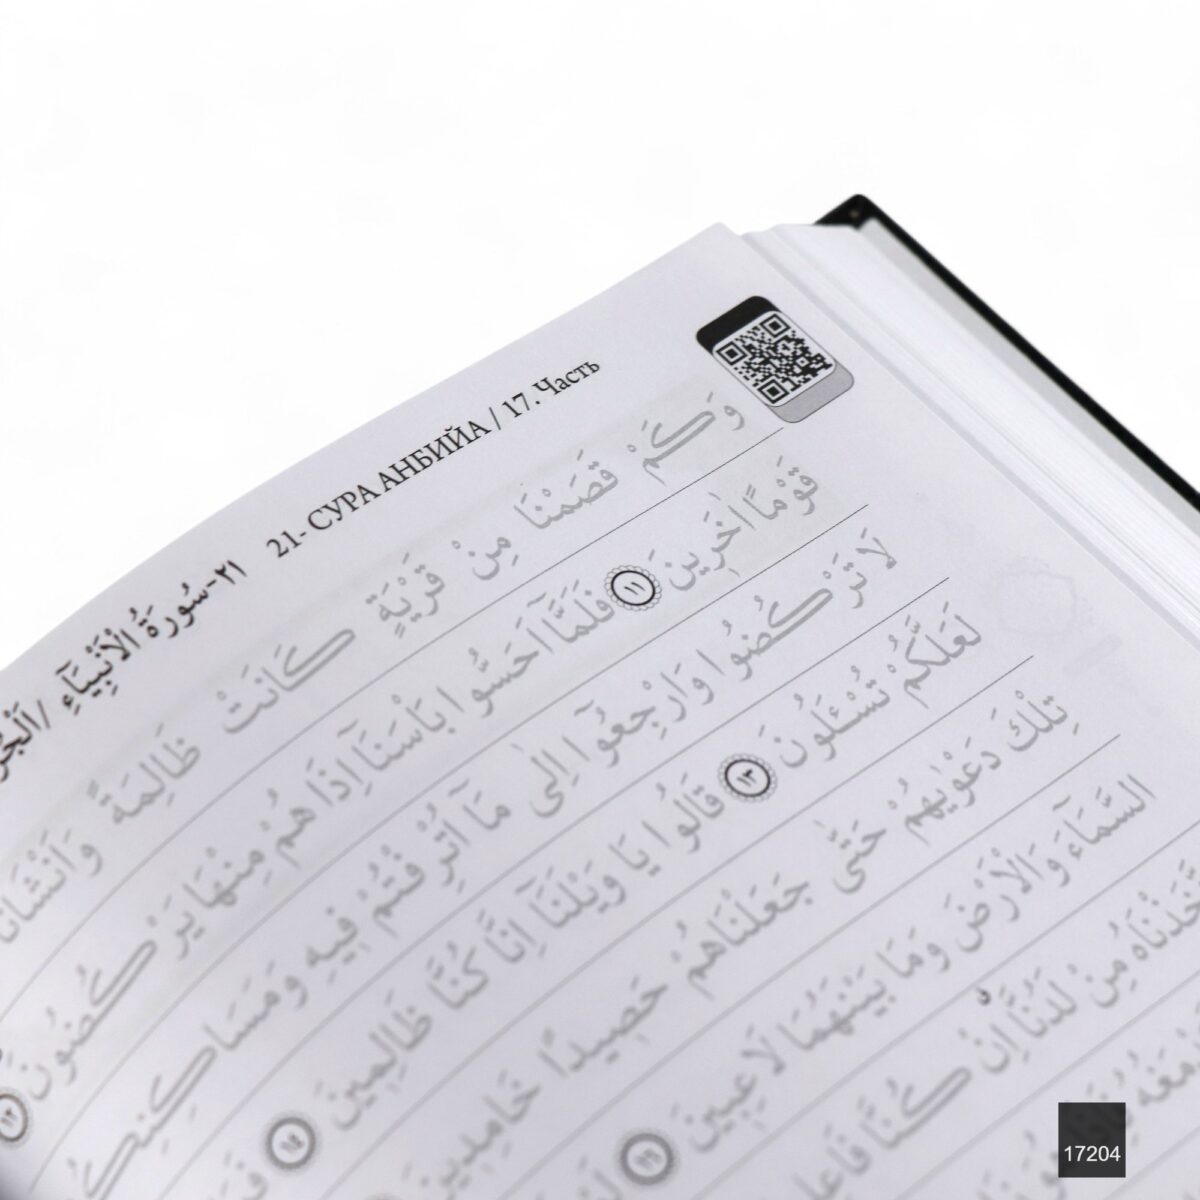 ٢١-سُورَةُ الْاَنْبِيَٓاءِ / 21- СУРА АНБИЙА / 17. Часть
وَكَمْ قَصَمْنَا مِنْ قَرْيَةٍ كَانَتْ ظَالِمَةً وَاَنْشَاْنَا
قَوْمًا اٰخَرٖينَ ﴿١١﴾ فَلَمَّٓا اَحَسُّوا بَاْسَنَٓا اِذَا هُمْ مِنْهَا يَرْكُضُونَ ﴿١٢﴾
لَا تَرْكُضُوا وَارْجِعُٓوا اِلٰى مَٓا اُتْرِفْتُمْ فٖيهِ وَمَسَاكِنِكُمْ
لَعَلَّكُمْ تُسْـَٔلُونَ ﴿١٣﴾ قَالُوا يَا وَيْلَنَٓا اِنَّا كُنَّا ظَالِمٖينَ ﴿١٤﴾
تِلْكَ دَعْوٰيهُمْ حَتّٰى جَعَلْنَاهُمْ حَصٖيدًا خَامِدٖينَ
السَّمَٓاءَ وَالْاَرْضَ وَمَا بَيْنَهُمَا لَاعِبٖينَ ﴿١٦﴾
مِنْ لَدُنَّٓا اِنْ كُنَّا
17204